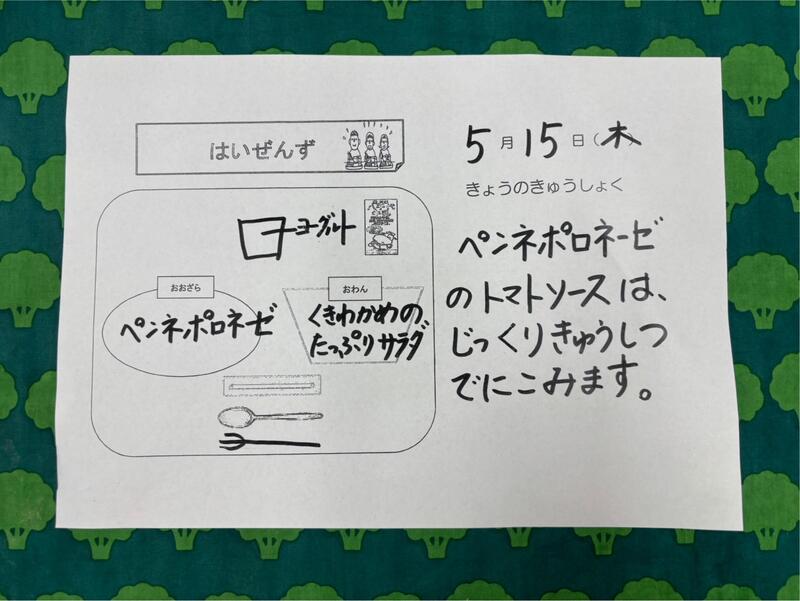 はいぜんず
5月15日(木)
きょうのきゅうしょく
ヨーグルト
おおざら
おわん
ペンネポロネゼ
くきわかめの
たっぷりサラダ
ペンネポロネーゼ
のトマトソースは、
じっくりきゅうしつ
でにこみます。